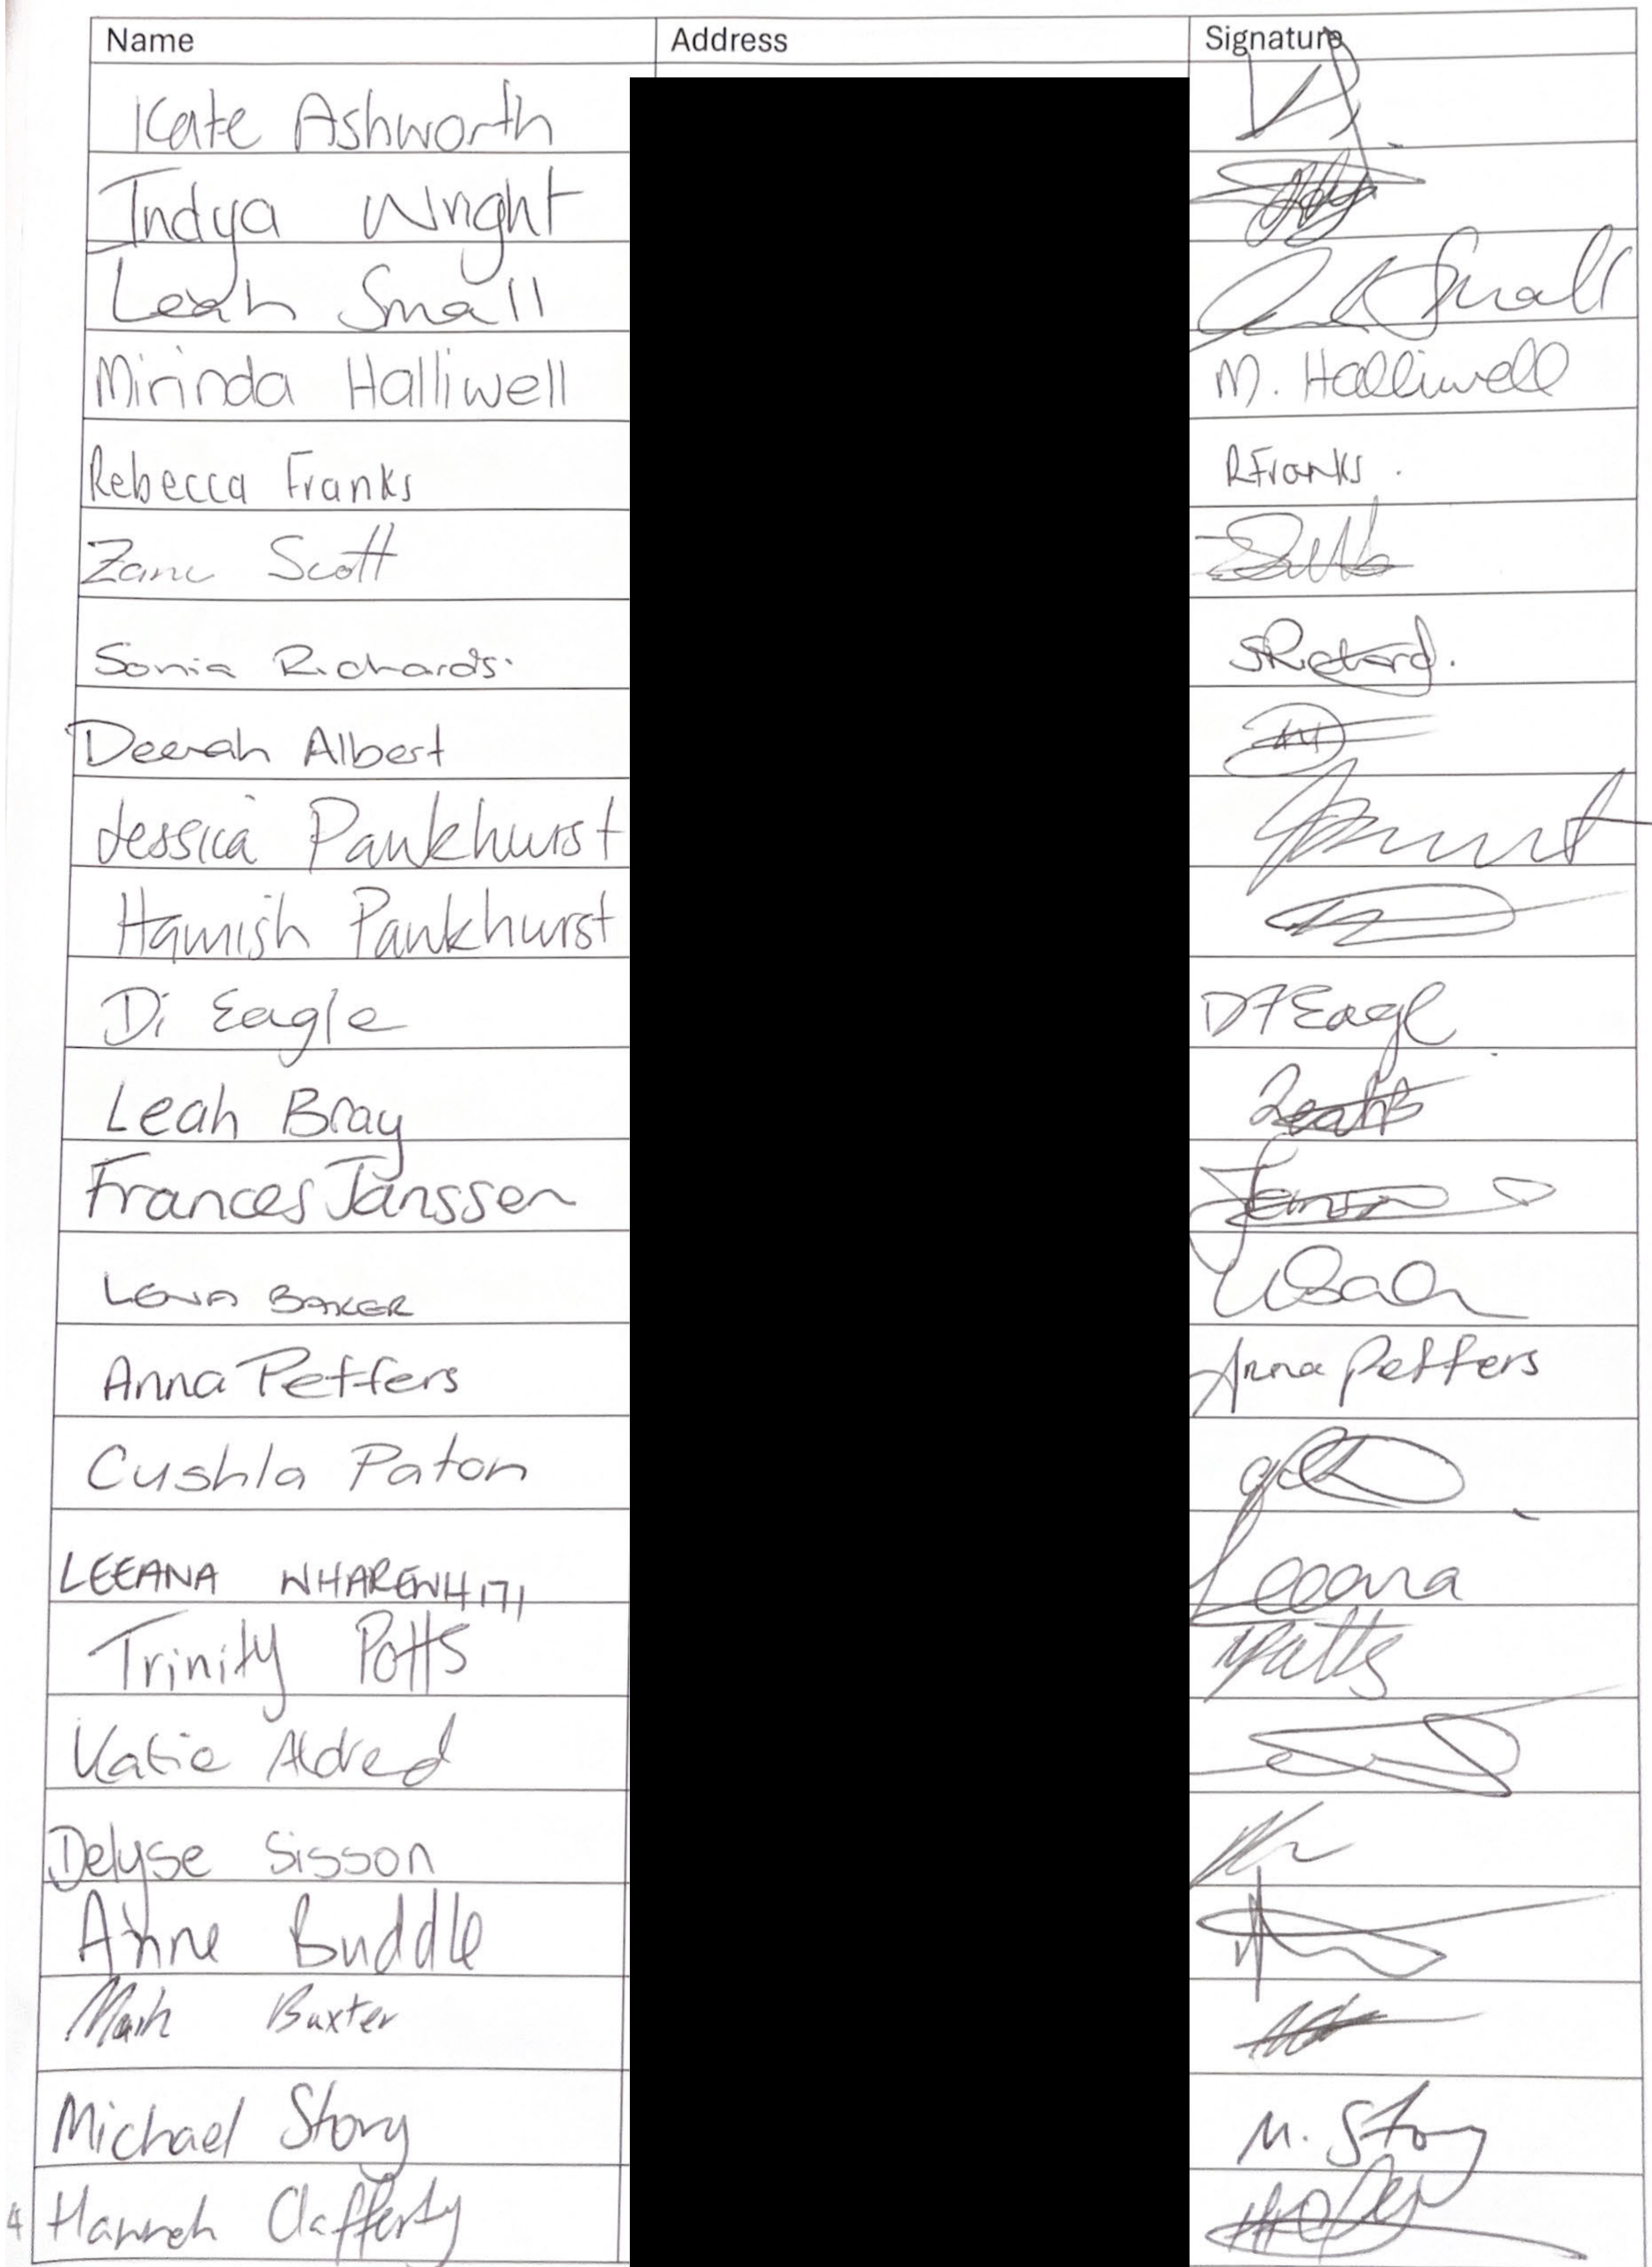 Name Address Signature
Kate Ashworth
Indya Wright
Leah Small Small
Mirinda Halliwell M. Halliwell
Rebecca Franks RFranks.
Zane Scott
Sonia Richards.
Albert
Jessica Pankhurst
Hamish Pankhurst
Di Eagle DFEagle
Leah Bray LeahB
Frances Janssen
BAKER
Anna Peffers Anna Peffers
Cushla Paton
LEEANA Leeana
Trinity Potts TPotts
Katie Aldred
Delyse Sisson
Anne Buddle
Mark Baxter
Michael Story M. Story
4 Hannah Clafferty